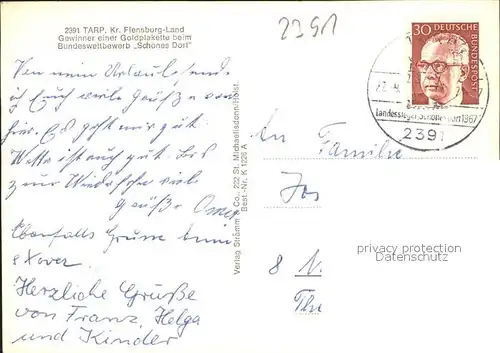 2391 TARP, Kr. Flensburg-Land
Gewinner einer Goldplakette beim
Bundeswettbewerb „Schönes Dorf"
2391
30 DEUTSCHE BUNDESPOST
Landessieger Schönes Dorf 1967
2391
Von meinem Urlaub sende
ich Euch viele Grüße
hier. Es geht mir gut
Wetter ist auch gut. Bis
zum Wiedersehn viele
Grüße Oma
Ebenfalls Grüße
Herzliche Grüße
von Franz, Helga
und Kinder
Verlag Strämm Co., 222 St. Michaelisdonn/Holst.
Best.-Nr. K 1226 A
An
Familie
Jos
8
privacy protection
Datenschutz